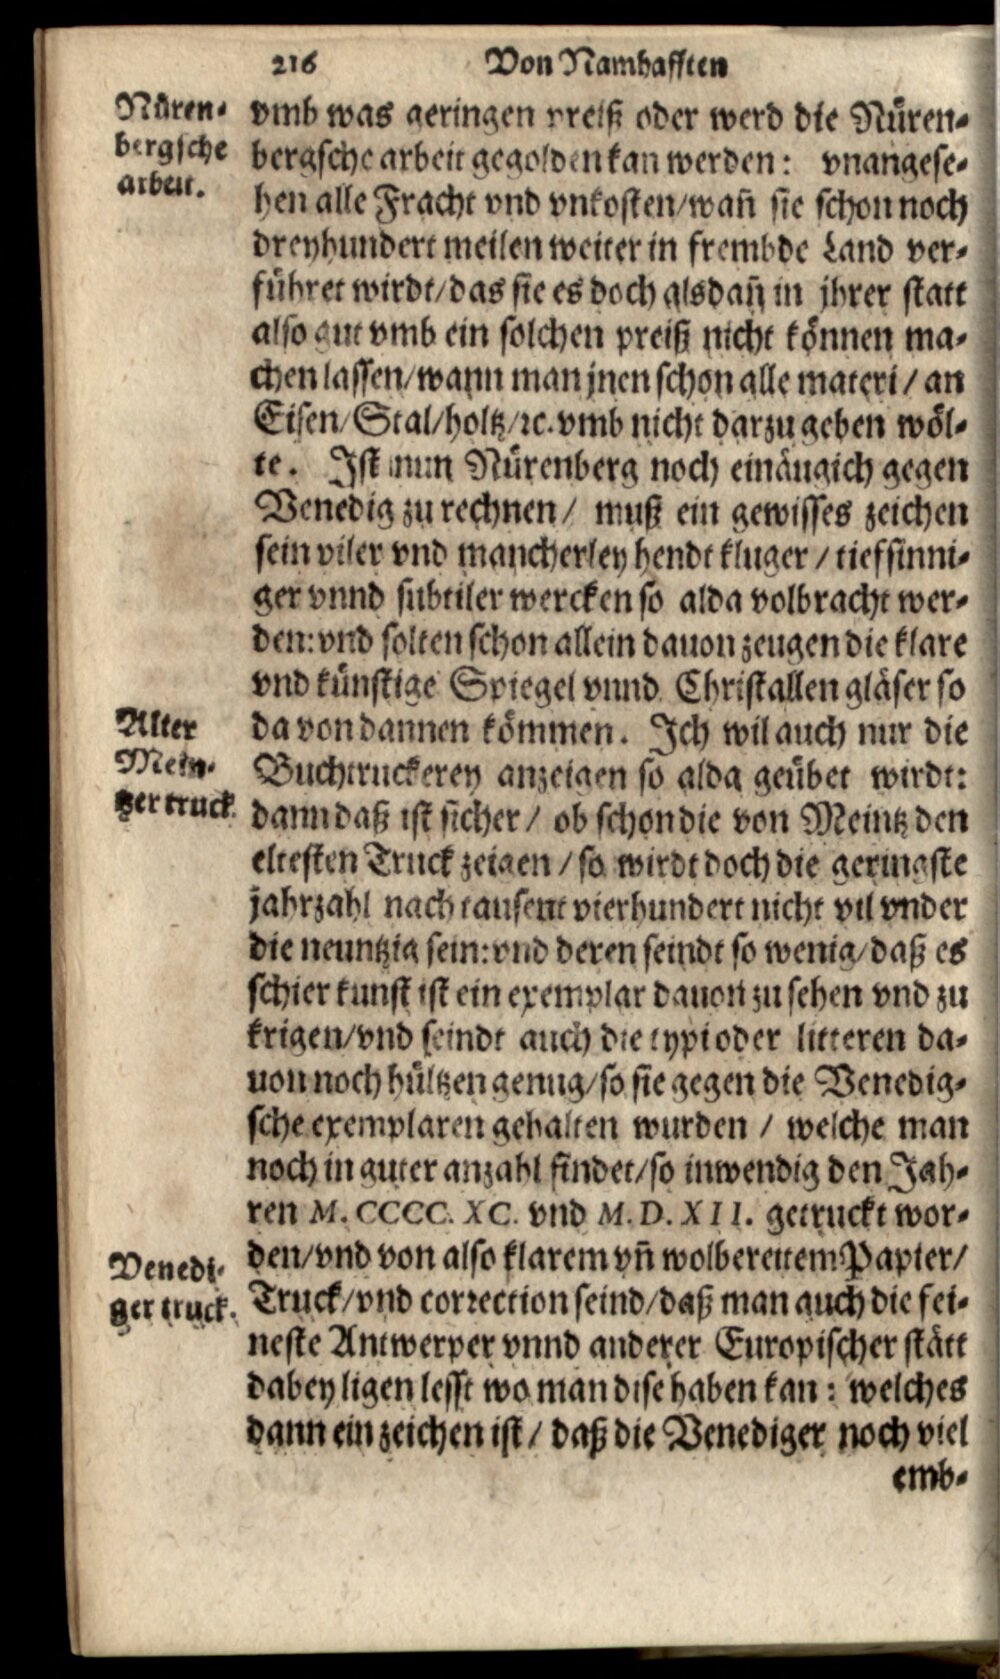 216 Von Namhafften
Nüren-
bergsche
arbeit.
vmb was geringen preiß oder werd die Nüren-
bergsche arbeit gegolden kan werden: vnangese-
hen alle Fracht vnd vnkosten/wañ sie schon noch
dreyhundert meilen weiter in frembde Land ver-
führet wirdt/das sie es doch alsdañ in jhrer statt
also gut vmb ein solchen preiß nicht können ma-
chen lassen/wann man jnen schon alle materi/ an
Eisen/Stal/holtz/ꝛc. vmb nicht darzu geben wöl-
te. Ist nun Nürenberg noch einäugich gegen
Venedig zu rechnen/ muß ein gewisses zeichen
sein viler vnd mancherley hendt kluger/ tiefsinni-
ger vnnd subtiler wercken so alda volbracht wer-
den: vnd solten schon allein dauon zeugen die klare
vnd künstige Spiegel vnnd Christallen gläser so
da von dannen kömmen. Ich wil auch nur die
Buchtruckerey anzeigen so alda geübet wirdt:
dann daß ist sicher/ ob schon die von Meintz den
eltesten Truck zeigen/ so wirdt doch die geringste
jahrzahl nach tausent vierhundert nicht vil vnder
die neuntzig sein: vnd deren seindt so wenig/daß es
schier kunst ist ein exemplar dauon zu sehen vnd zu
krigen/vnd seindt auch die typi oder litteren da-
uon noch hültzen genug/so sie gegen die Venedig-
sche exemplaren gehalten wurden/ welche man
noch in guter anzahl findet/so inwendig den Jah-
ren M. CCCC. XC. vnd M. D. XII. getruckt wor-
den/vnd von also klarem vñ wolbereitem Papier/
Truck/vnd correction seind/daß man auch die fei-
neste Antwerper vnnd anderer Europischer stätt
dabey ligen lesst wo man dise haben kan: welches
dann ein zeichen ist/ daß die Venediger noch viel
emb-
Alter
Mein-
tzer truck.
Venedi-
ger truck.